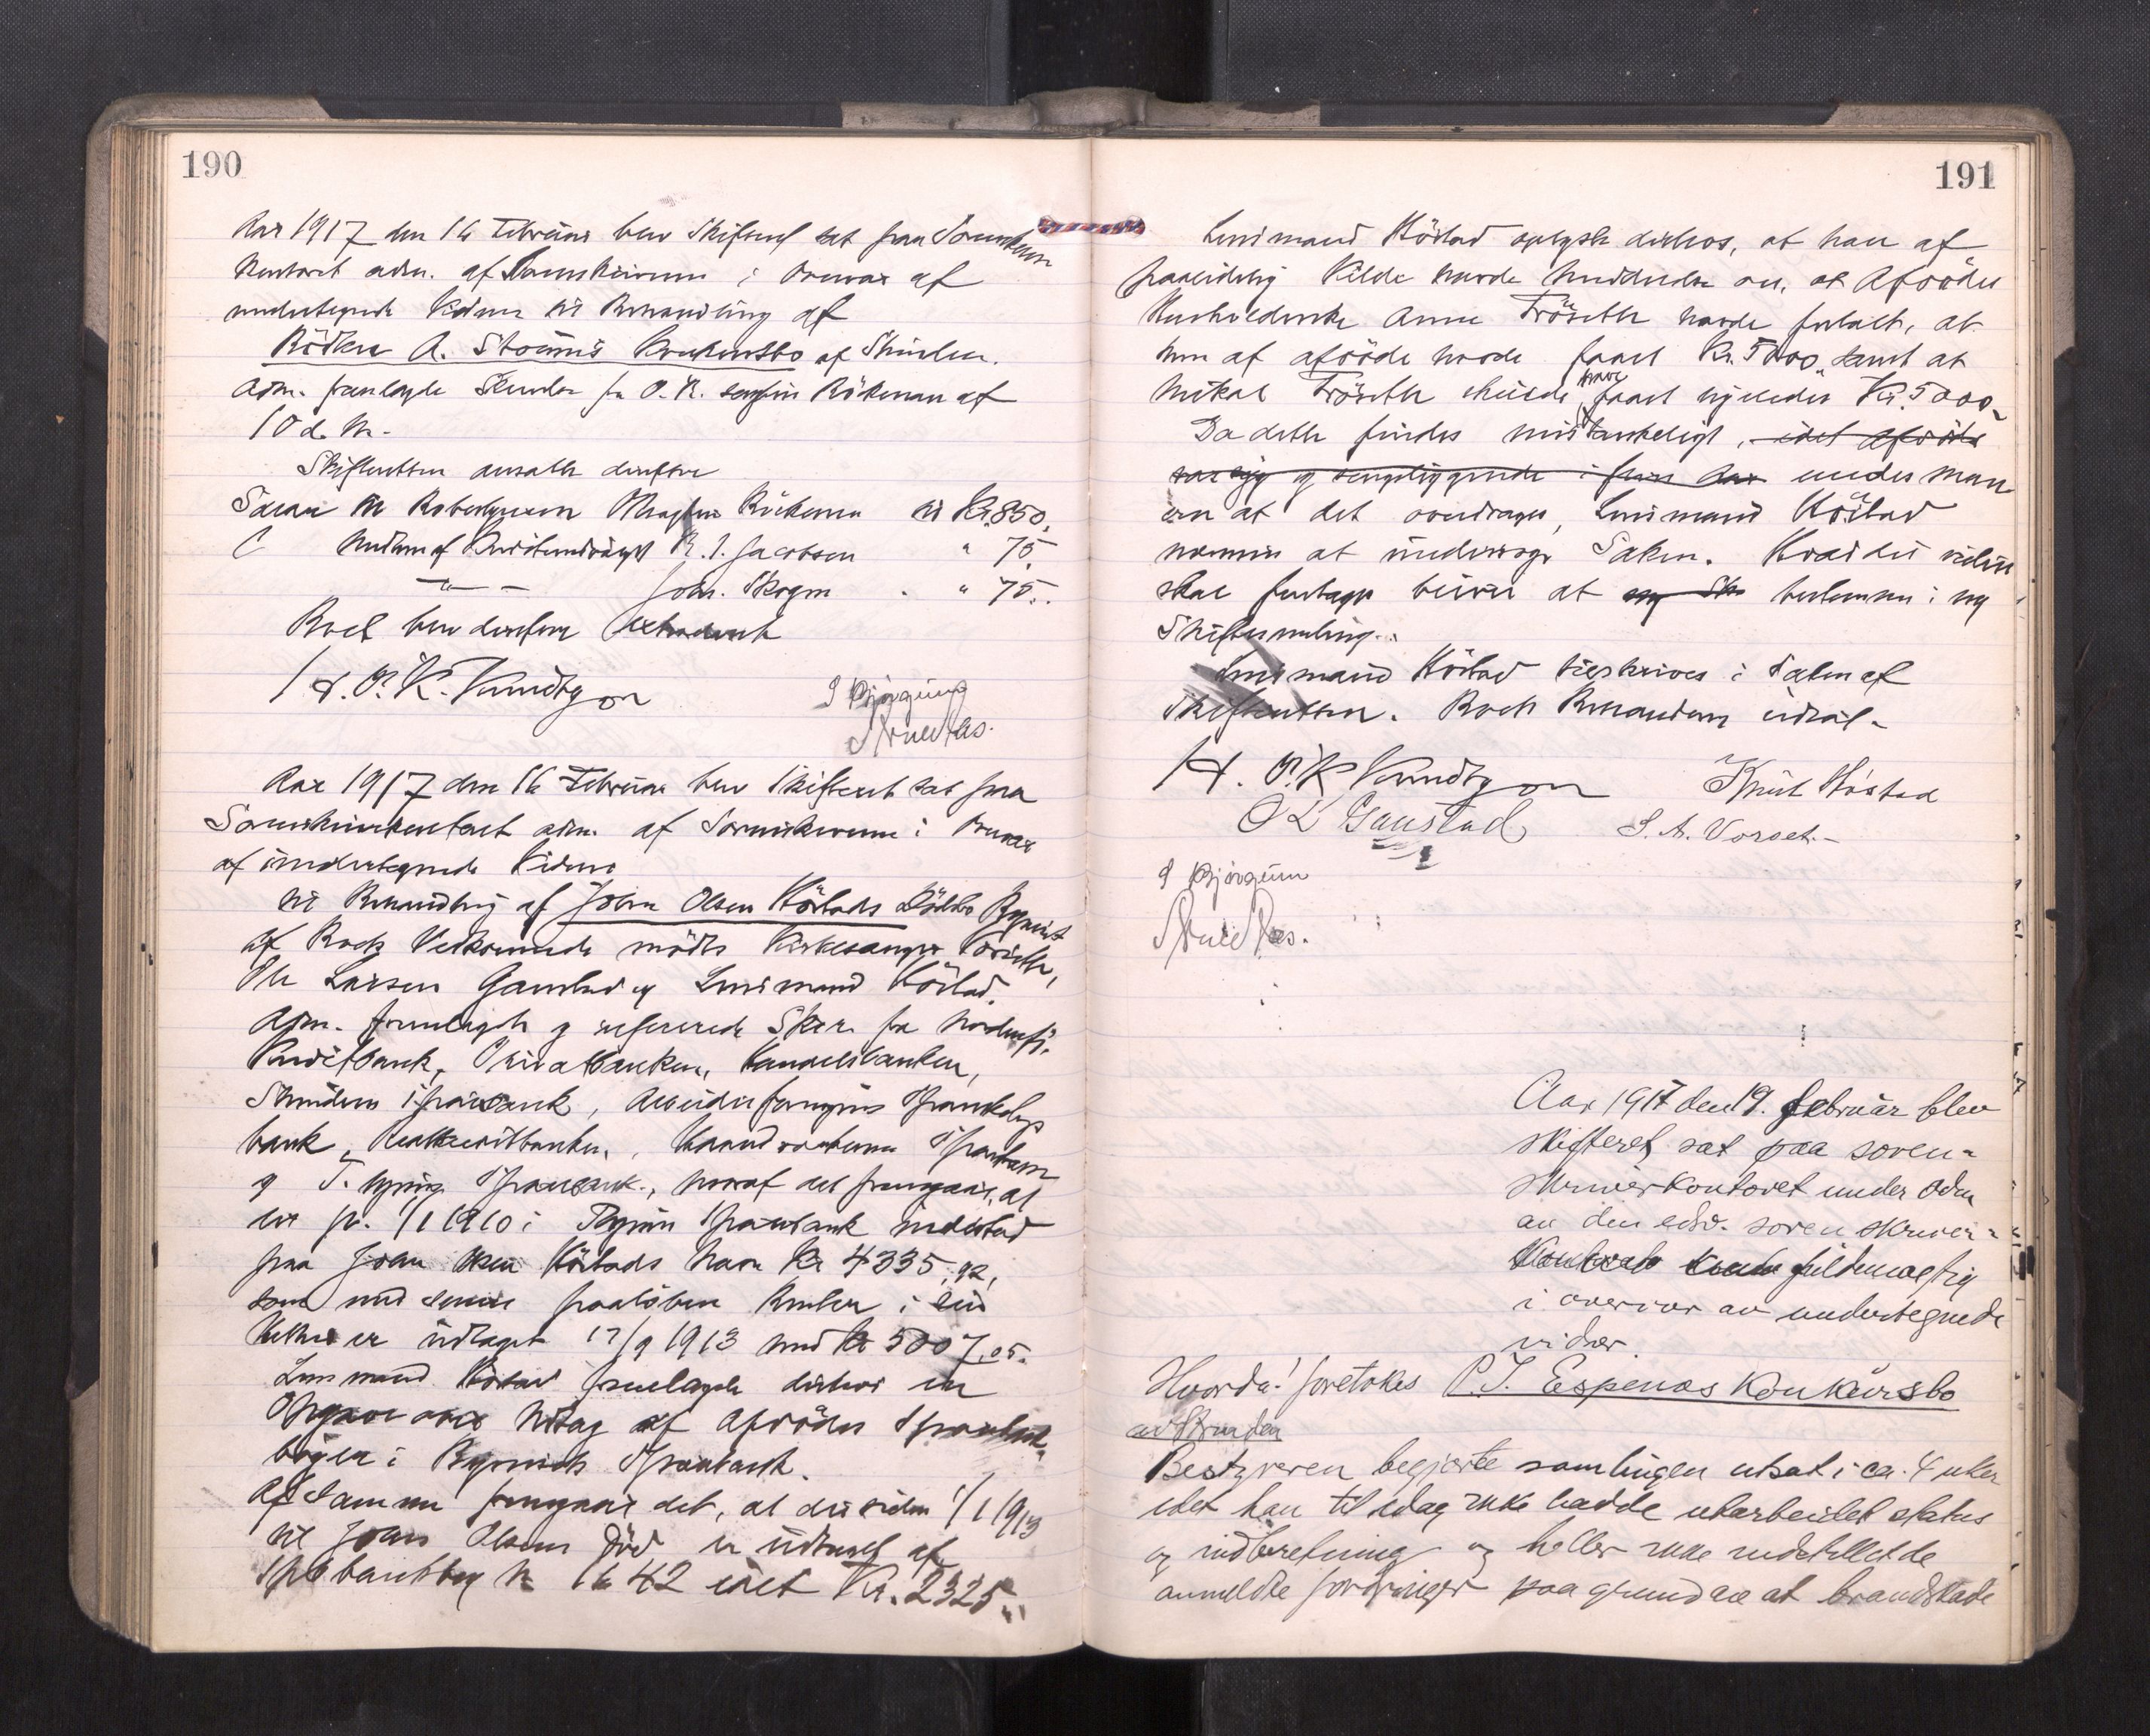 190
Aar 1917 den 16 Februar blev Skifteret sat paa Sorenskriver
Kontoret adm. af Sorenskriveren i Overvær af
undertegnede Vidner til Behandling af
A. Konkursbo af Strinden.
Adm. fremlagde Skrivelse fra O.R.
10 d. M.
Skifteretten ansatte derefter
Kr. 850.
R. I. Jacobsen " 75.
—"— Joh. Skogen " 75.
Boet blev derefter extraderet
H. O. K. Knudtzon
I Bjørgum
Aar 1917 den 16 Februar blev Skifteret sat paa
Sorenskriverkontoret adm. af Sorenskriveren i Overvær
af undertegnede Vidner
til Behandling af Johan Olsen Høstads Dødsbo Byneset
af Boets Vedkommende mødte Kirkesanger
Ole Larsen Gaustad og Lensmand Høstad.
Adm. fremlagde og refererede Skr. fra Nordenfj.
Kreditbank, Privatbanken, Handelsbanken,
Strindens Sparebank, Arbeiderforeningens
bank, Realkreditbanken, Haandværkernes Sparebank
og T.hjems Sparebank, hvoraf det fremgaar, at
der pr. 1/1 1910 i Bynes Sparebank indestod
paa Johan Olsen Høstads Navn Kr 4335,92,
som med senere paaløbne Renter i sin
Helhed er udtaget 17/9 1913 med Kr 5007.05.
Lensmand Høstad fremlagde derhos en
Opgave over Uttag af Afdødes Sparebank-
bøger i Bynesets Sparebank.
Af Samme fremgaar det, at der siden 1/1 1913
til Johan Olsens Død er udtaget af
Sp.bankbog No 1642 ialt Kr. 2325.
191
Lensmand Høstad oplyste derhos, at han af
paalidelig Kilde havde Meddelelse om, at Afdødes
Husholderske Anne Frøseth havde fortalt, at
hun af afdøde havde faaet Kr. 5000, samt at
Mikal Frøseth skulde have faaet ligeledes Kr. 5000.
Da dette findes mistænkeligt, idet afdøde
var syg og sengeliggende i flere Aar under man
at det overdrages Lensmand Høstad
nærmere at undersøge Saken. Hvad der videre
skal foretages bliver at ny Sk bestemme i ny
Skiftesamling.
Lensmand Høstad tilskrives i Saken af
Skifteretten. Boets Behandling udsat.
H. O. K Knudtzon
Knut Høstad
O L Gaustad
S. A. Vorset.
I Bjørgum
Aar 1917 den 19. februar blev
skifteret sat paa soren-
skriverkontoret under adm
av den edsv. sorenskriver-
fuldmægtig
i overvær av undertegnede
vidner.
Hvorda! foretokes P. I. Espenes Konkursbo
av Strinden
Bestyreren begjærte samlingen utsat i ca. 4 uker
idet han til idag ikke hadde utarbeidet status
og indberetning og heller ikke indstillet de
anmeldte fordringer paa grund av at brandskade